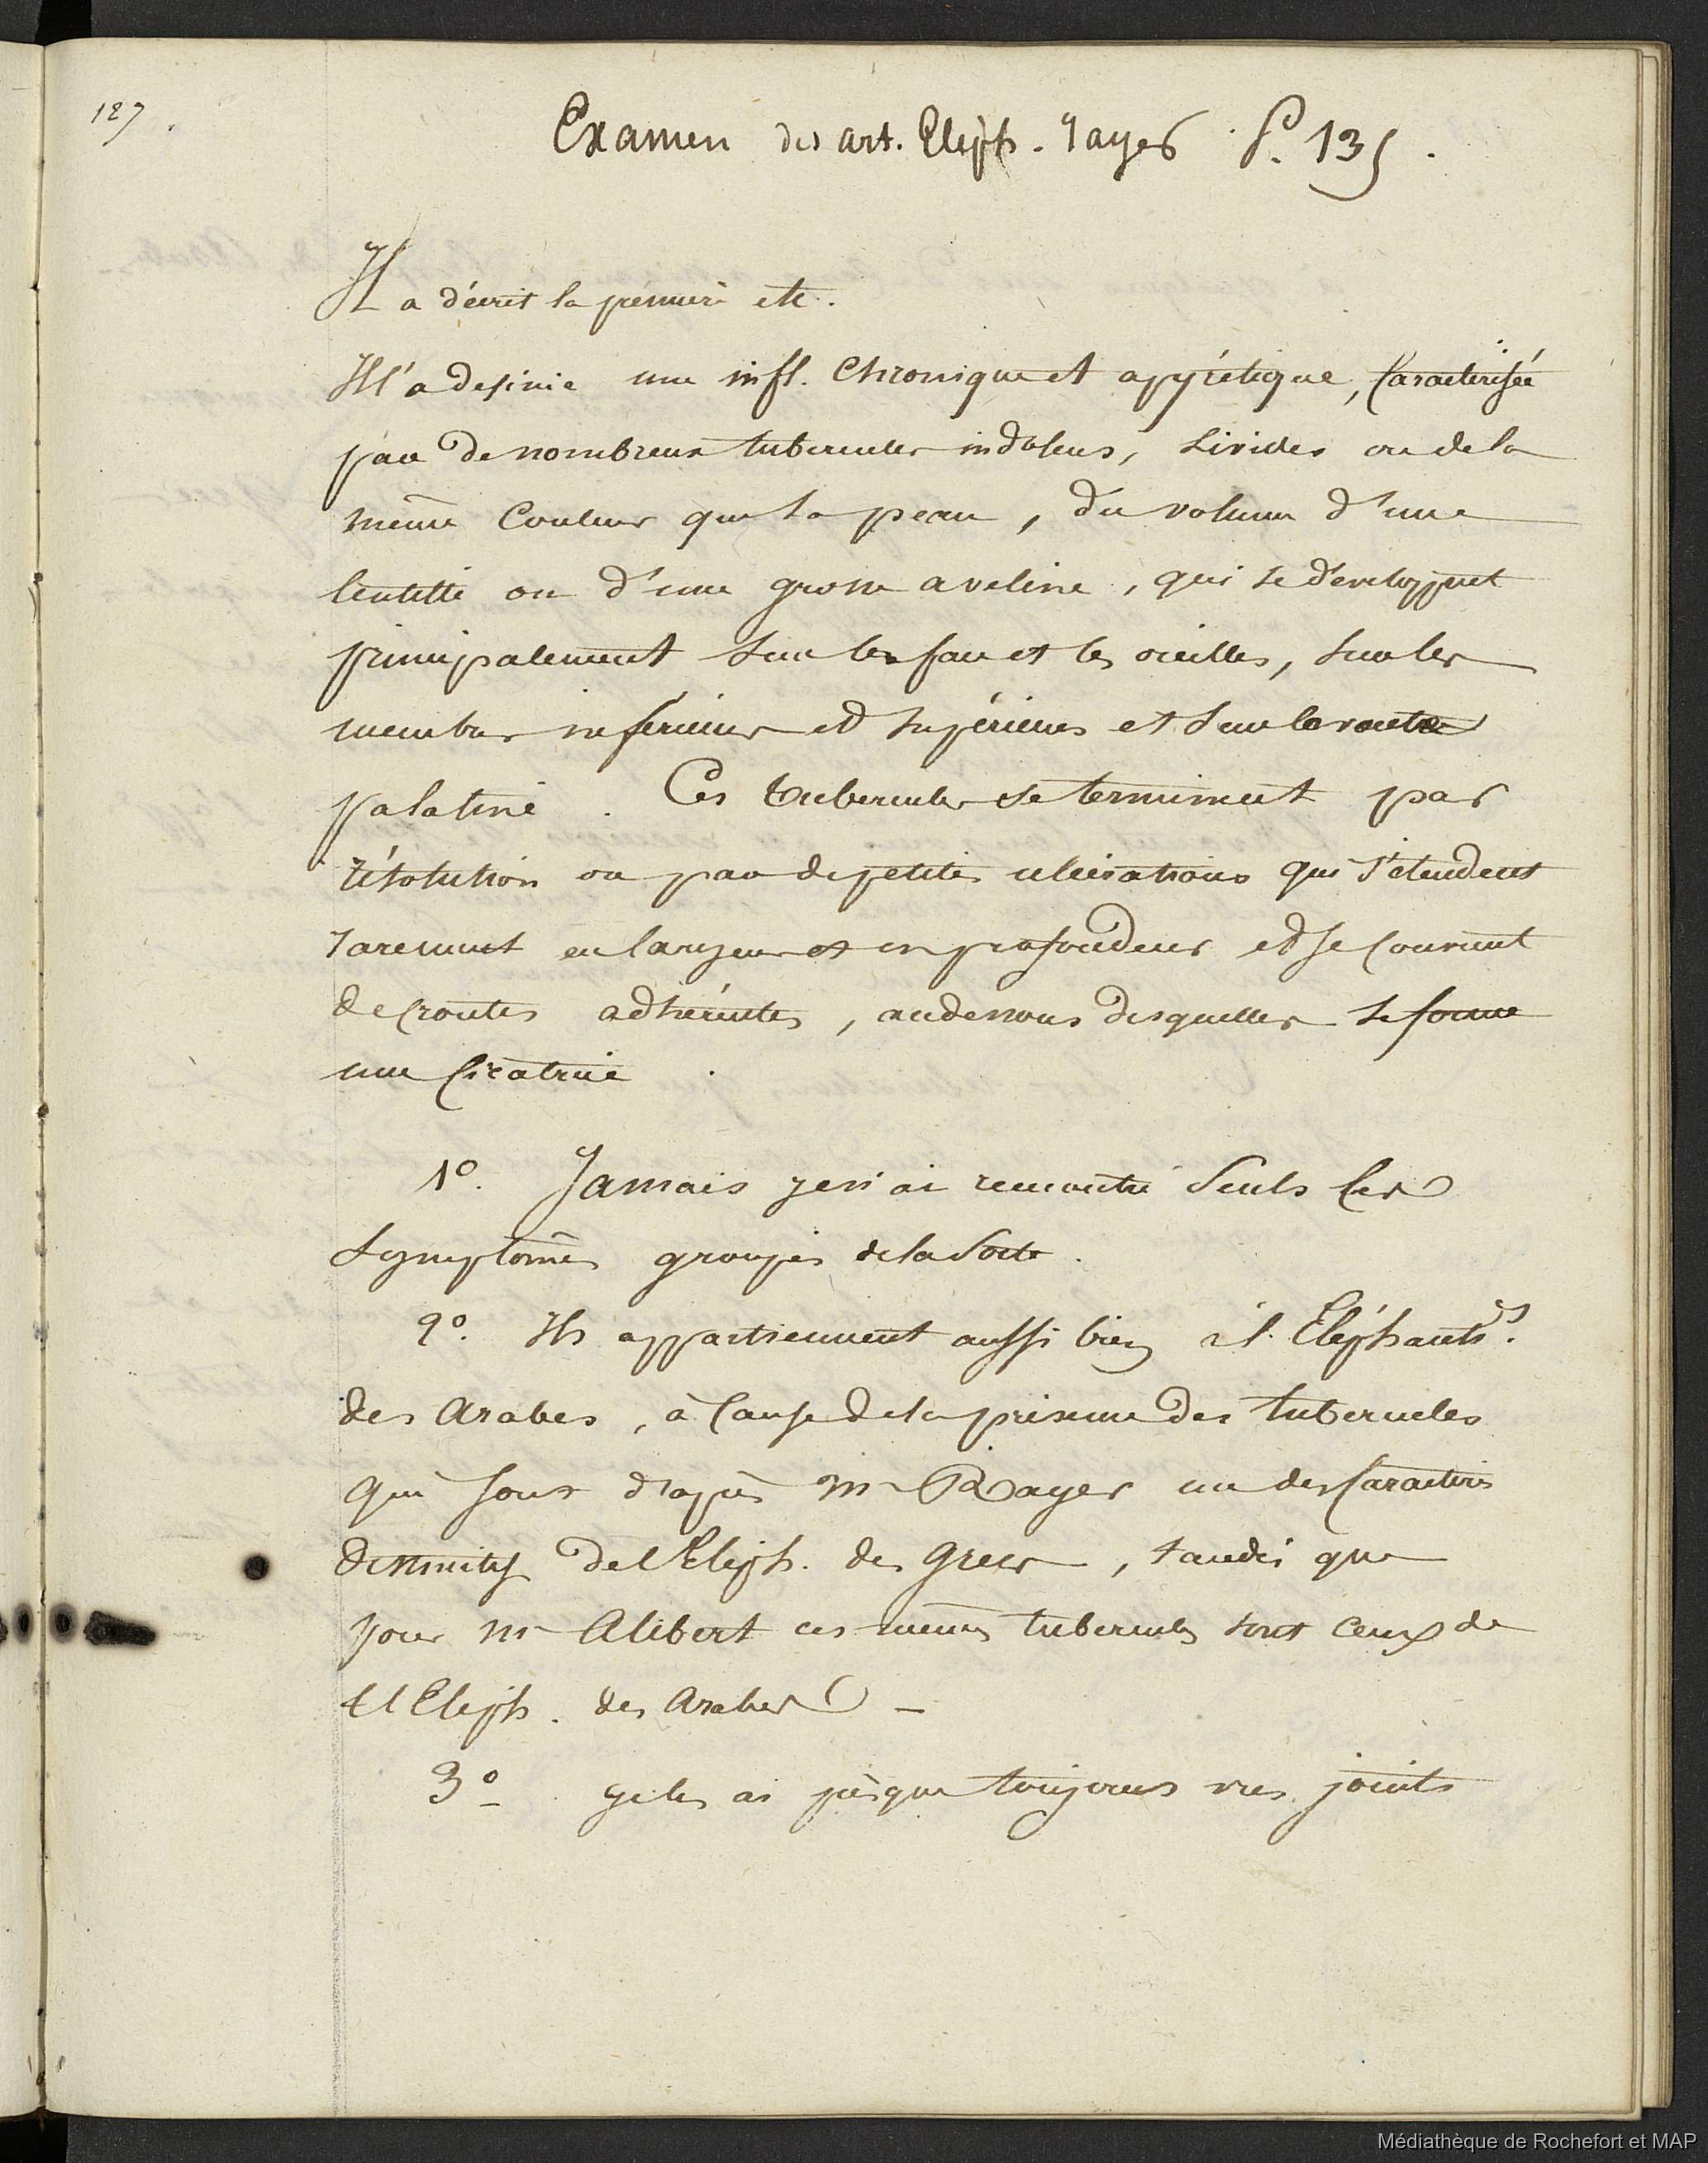 127.
Examen des art. Eleph. rayer P. 135.
Il a décrit la première etc.
Il l'a definie une infl. Chronique et apyrétique, Caractérisée
par de nombreux tubercules indolens, livides ou de la
même Couleur que la peau, du volume d'une
lentille ou d'une grosse aveline, qui se développent
principalement sur la face et les oreilles, sur les
membres inférieurs et supérieurs et sur la voute
palatine. Ces tubercules se terminent par
résolution ou par de petites ulcérations qui s'étendent
rarement en largeur et en profondeur et se Couvrent
de Croutes adhérentes, au dessous desquelles se forme
une Cicatrice.
1o. Jamais je n'ai rencontré seuls Ces
symptômes groupés de la sorte.
2o. Ils appartiennent aussi bien à l. Eléphants.
des Arabes, à Cause de la présence des tubercules
qui sont d'après mr Rayer un des Caractères
de l'Eleph. des Grecs, tandis que
pour mr Alibert ces mêmes tubercules sont ceux de
l'Eleph. des Arabes –
3o je les ai presque toujours vus joints
Médiathèque de Rochefort et MAP